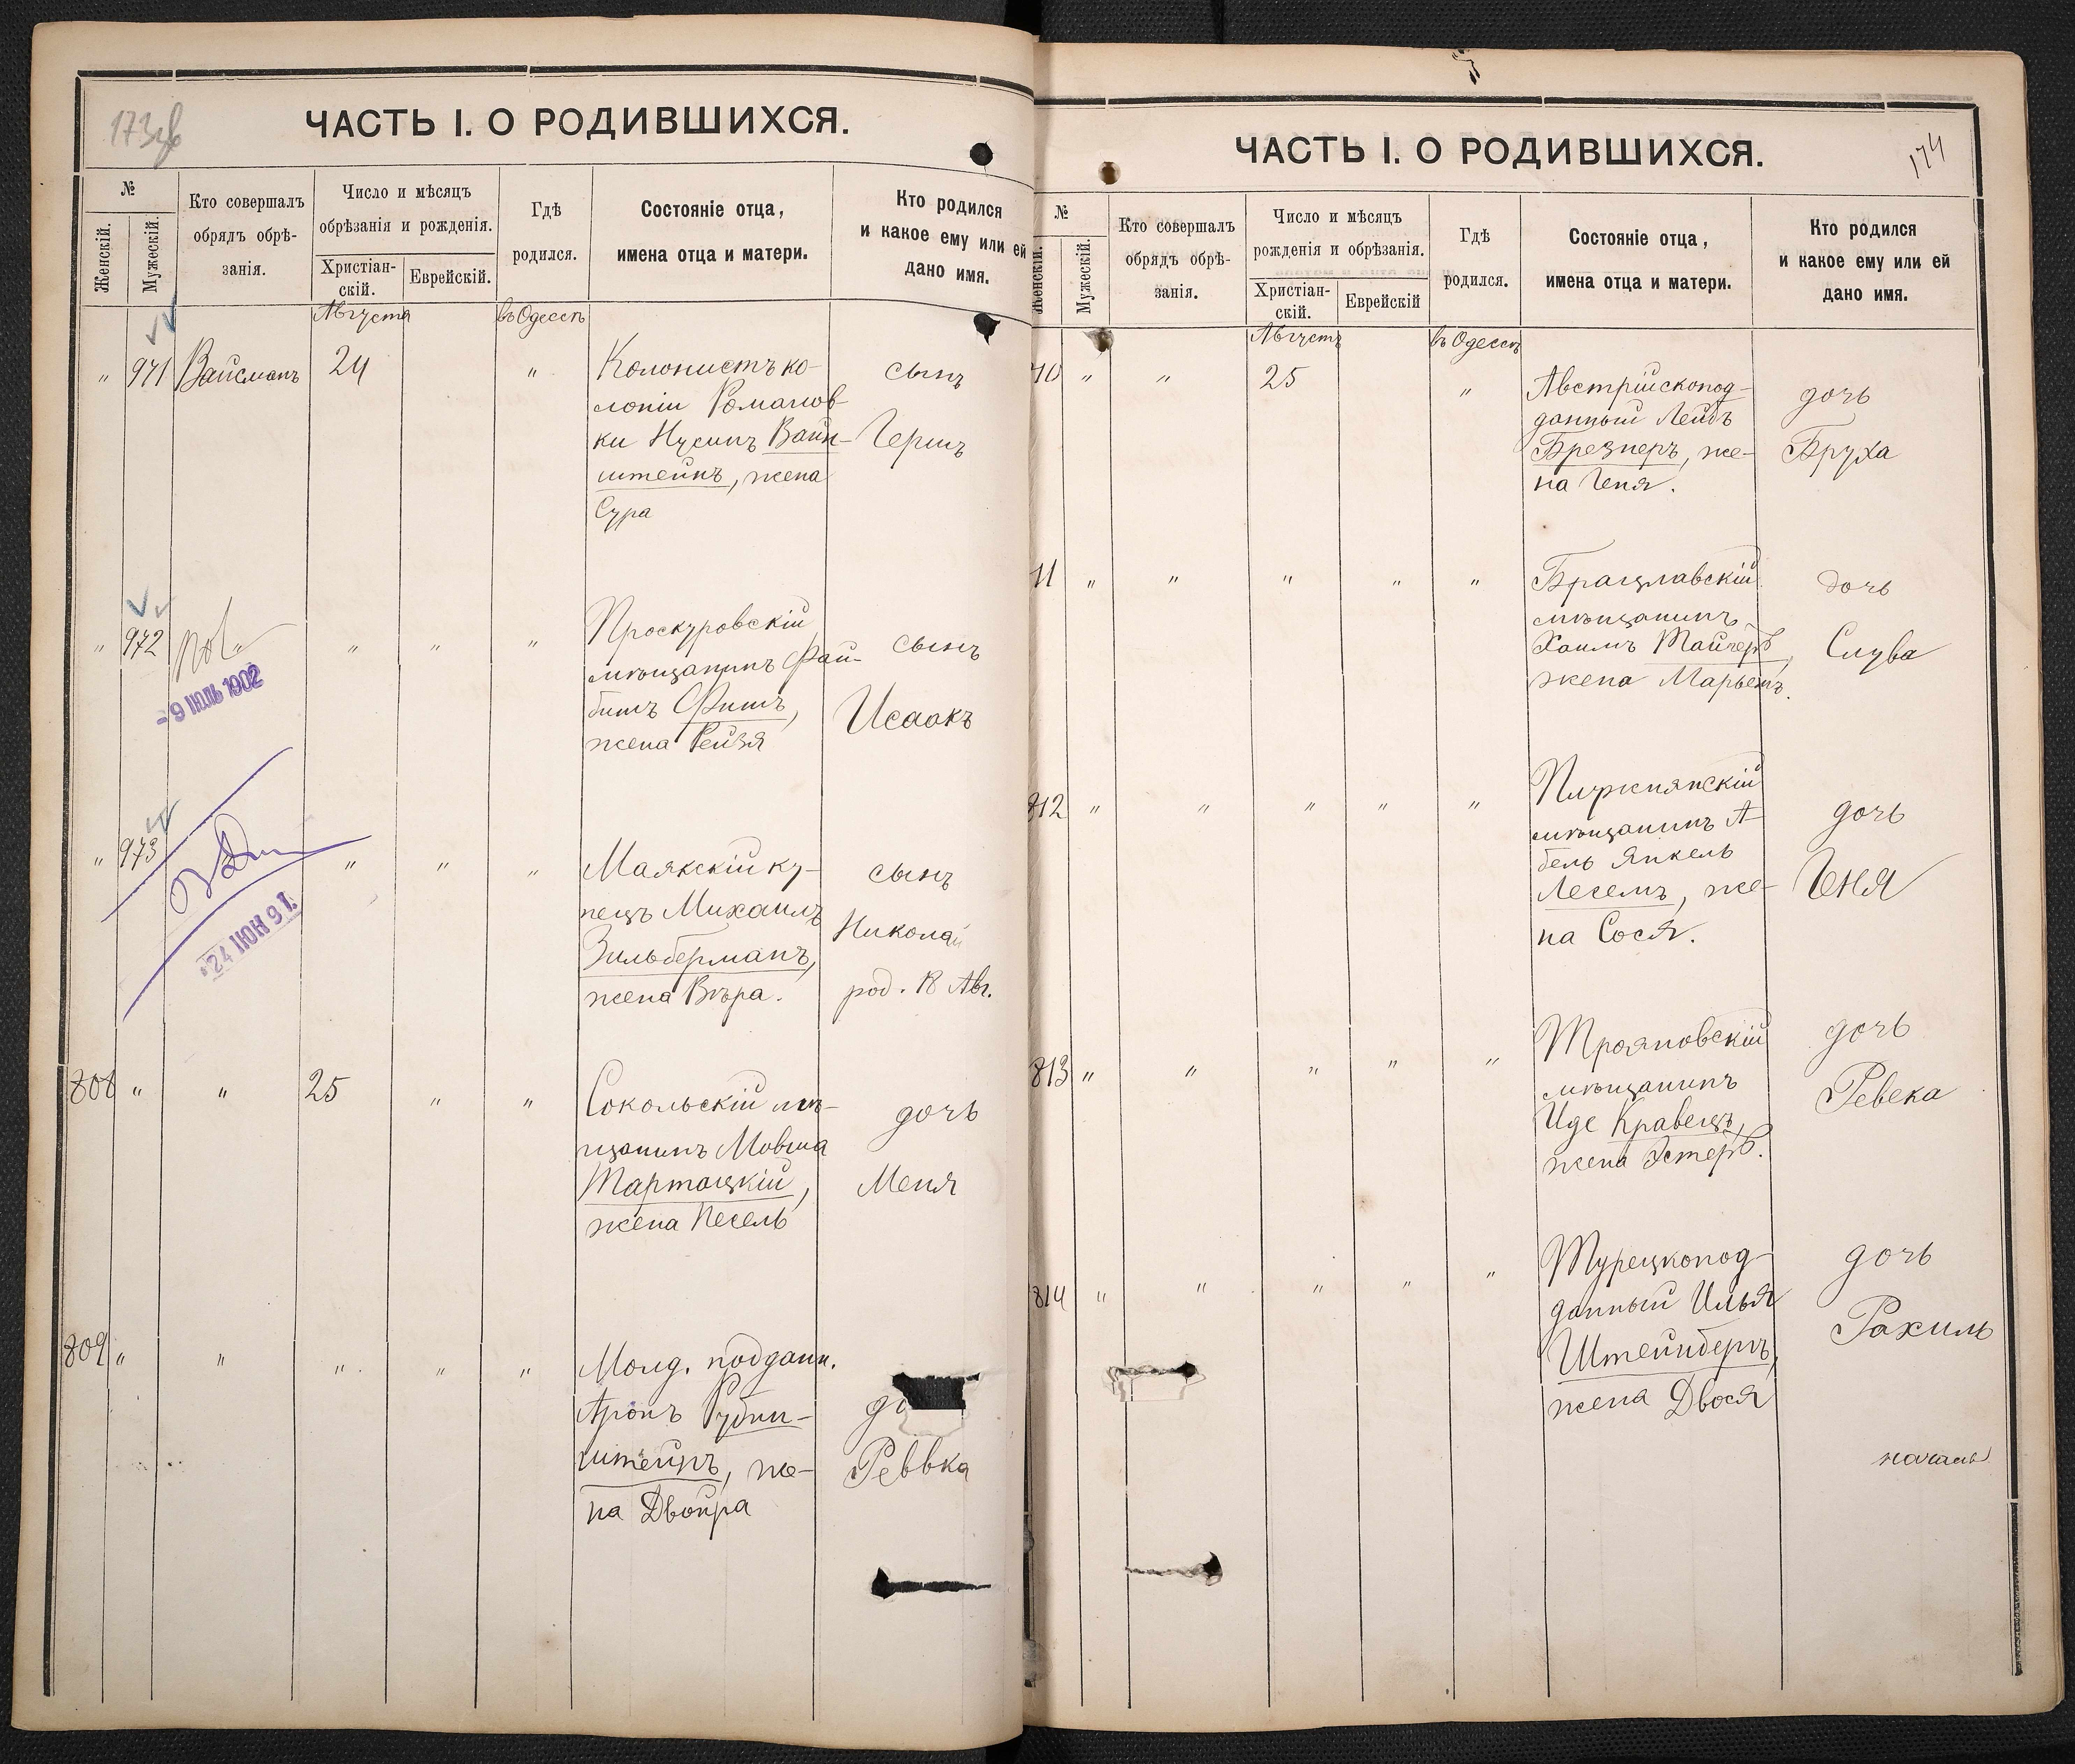 173об
ЧАСТЬ I. О РОДИВШИХСЯ.
№
Женскій.
Мужескій.
Кто совершалъ
обрядъ обрѣ-
занія.
Число и мѣсяцъ
обрѣзанія и рожденія.
Христіан-
скій.
Еврейскій.
Гдѣ
родился.
Состояніе отца,
имена отца и матери.
Кто родился
и какое ему или ей
дано имя.
Августа
въ Одессѣ
" 971 Вайсманъ 24 "
Колонистъ ко-
лоніи Романов-
ки Нусинъ Вайн-
штейнъ, жена
Сура
сынъ
Гершъ
" 972 " " "
- 9 ІЮЛЬ 1902
Проскуровскій
мѣщанинъ Фай-
бишъ Фишъ,
жена Рейзя
сынъ
Исаакъ
" 973 " " "
24 ІЮН 91.
Маякскій ку-
пецъ Михаилъ
Зильберманъ,
жена Вѣра.
сынъ
Николай
род. 18 Авг.
808 " " 25 " "
Сокольскій мѣ-
щанинъ Мовша
Тартацкій,
жена Песель
дочь
Меня
809 " " " " "
Молд. поддан.
Аронъ Рубин-
штейнъ, же-
на Двойра
Реввка
174
ЧАСТЬ I. О РОДИВШИХСЯ.
№
Женскій.
Мужескій.
Кто совершалъ
обрядъ обрѣ-
занія.
Число и мѣсяцъ
рожденія и обрѣзанія.
Христіан-
скій.
Еврейскій
Гдѣ
родился.
Состояніе отца,
имена отца и матери.
Кто родился
и какое ему или ей
дано имя.
Августъ
въ Одессѣ
10 " " 25 "
Австрійскопод-
данный Лейбъ
Брезнеръ, же-
на Геня.
дочь
Бруха
11 " " " " "
Брацлавскій
мѣщанинъ
Хаимъ Тайчеръ,
жена Марьемъ.
дочь
Слува
812 " " " " "
мѣщанинъ А-
бель Янкель
Лесемъ, же-
на Сося.
дочь
Геня
813 " " " " "
Трояновскій
мѣщанинъ
Иде Кравецъ,
жена Эстеръ.
дочь
Ревека
814 " " " " "
Турецкопод-
данный Илья
Штейнбергъ,
жена Двося
дочь
Рахиль